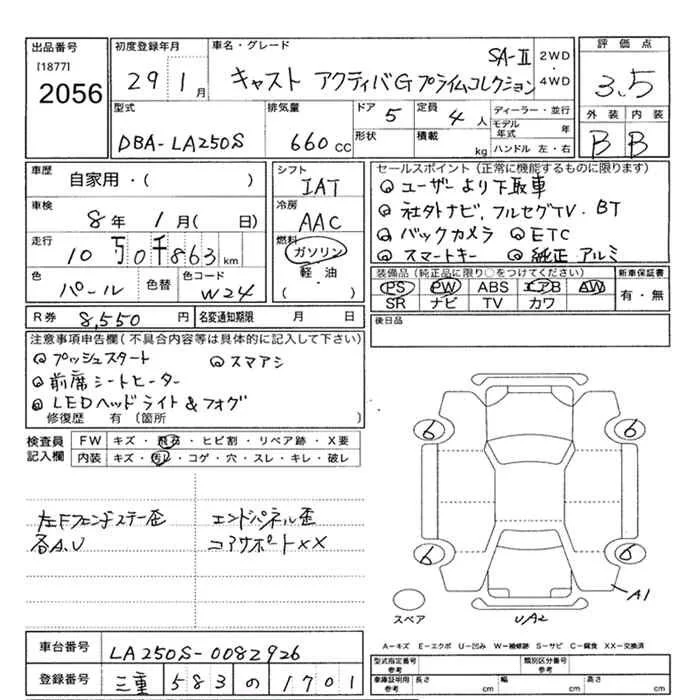 出品番号
[1877]
2056
初度登録年月
29 1月
車名・グレード
SA-Ⅱ
キャスト アクティバG プライムコレクション
2WD
・
4WD
評価点
3.5
外装 内装
B B
型式
DBA-LA250S
排気量
660 cc
ドア 5
形状
定員 4 人
積載 kg
ディーラー・並行
モデル年式 年
ハンドル 左・右
車歴
自家用・( )
車検
8年 1月( 日)
走行
10万0千863 km
色
パール
色替
色コード
W24
シフト
IAT
冷房
AAC
燃料
ガソリン
軽・油
( ・ )
セールスポイント(正常に機能するものに限ります)
◎ユーザーより下取車
◎社外ナビ,フルセグTV.BT
◎バックカメラ ◎ETC
◎スマートキー ◎純正アルミ
装備品(純正品に限り○をつけてください)
PS PW ABS エアB AW
SR ナビ TV カワ
新車保証書
有・無
R券 8,550 円
名変通知期限 月 日
後日品
注意事項申告欄(不具合内容等は具体的に記入して下さい)
◎プッシュスタート ◎スマアシ
◎前席シートヒーター
◎LEDヘッドライト&フォグ
修復歴 有(箇所 )
検査員記入欄
FW キズ・飛石・ヒビ割・リペア跡・X要
内装 キズ・汚レ・コゲ・穴・スレ・キレ・破レ
左Fフェンダステー歪
各A.U
エンドパネル歪
コアサポートXX
6 6
6 6
A1
UA2
スペア
A=キズ E=エクボ U=凹み W=補修跡 S=サビ C=腐食 XX=交換済
車台番号 LA250S-0082926
登録番号 三重 583 の 1701
型式指定番号
参考
類別区分番号
参考
車庫証明用
参考
長さ cm 幅 cm 高さ cm